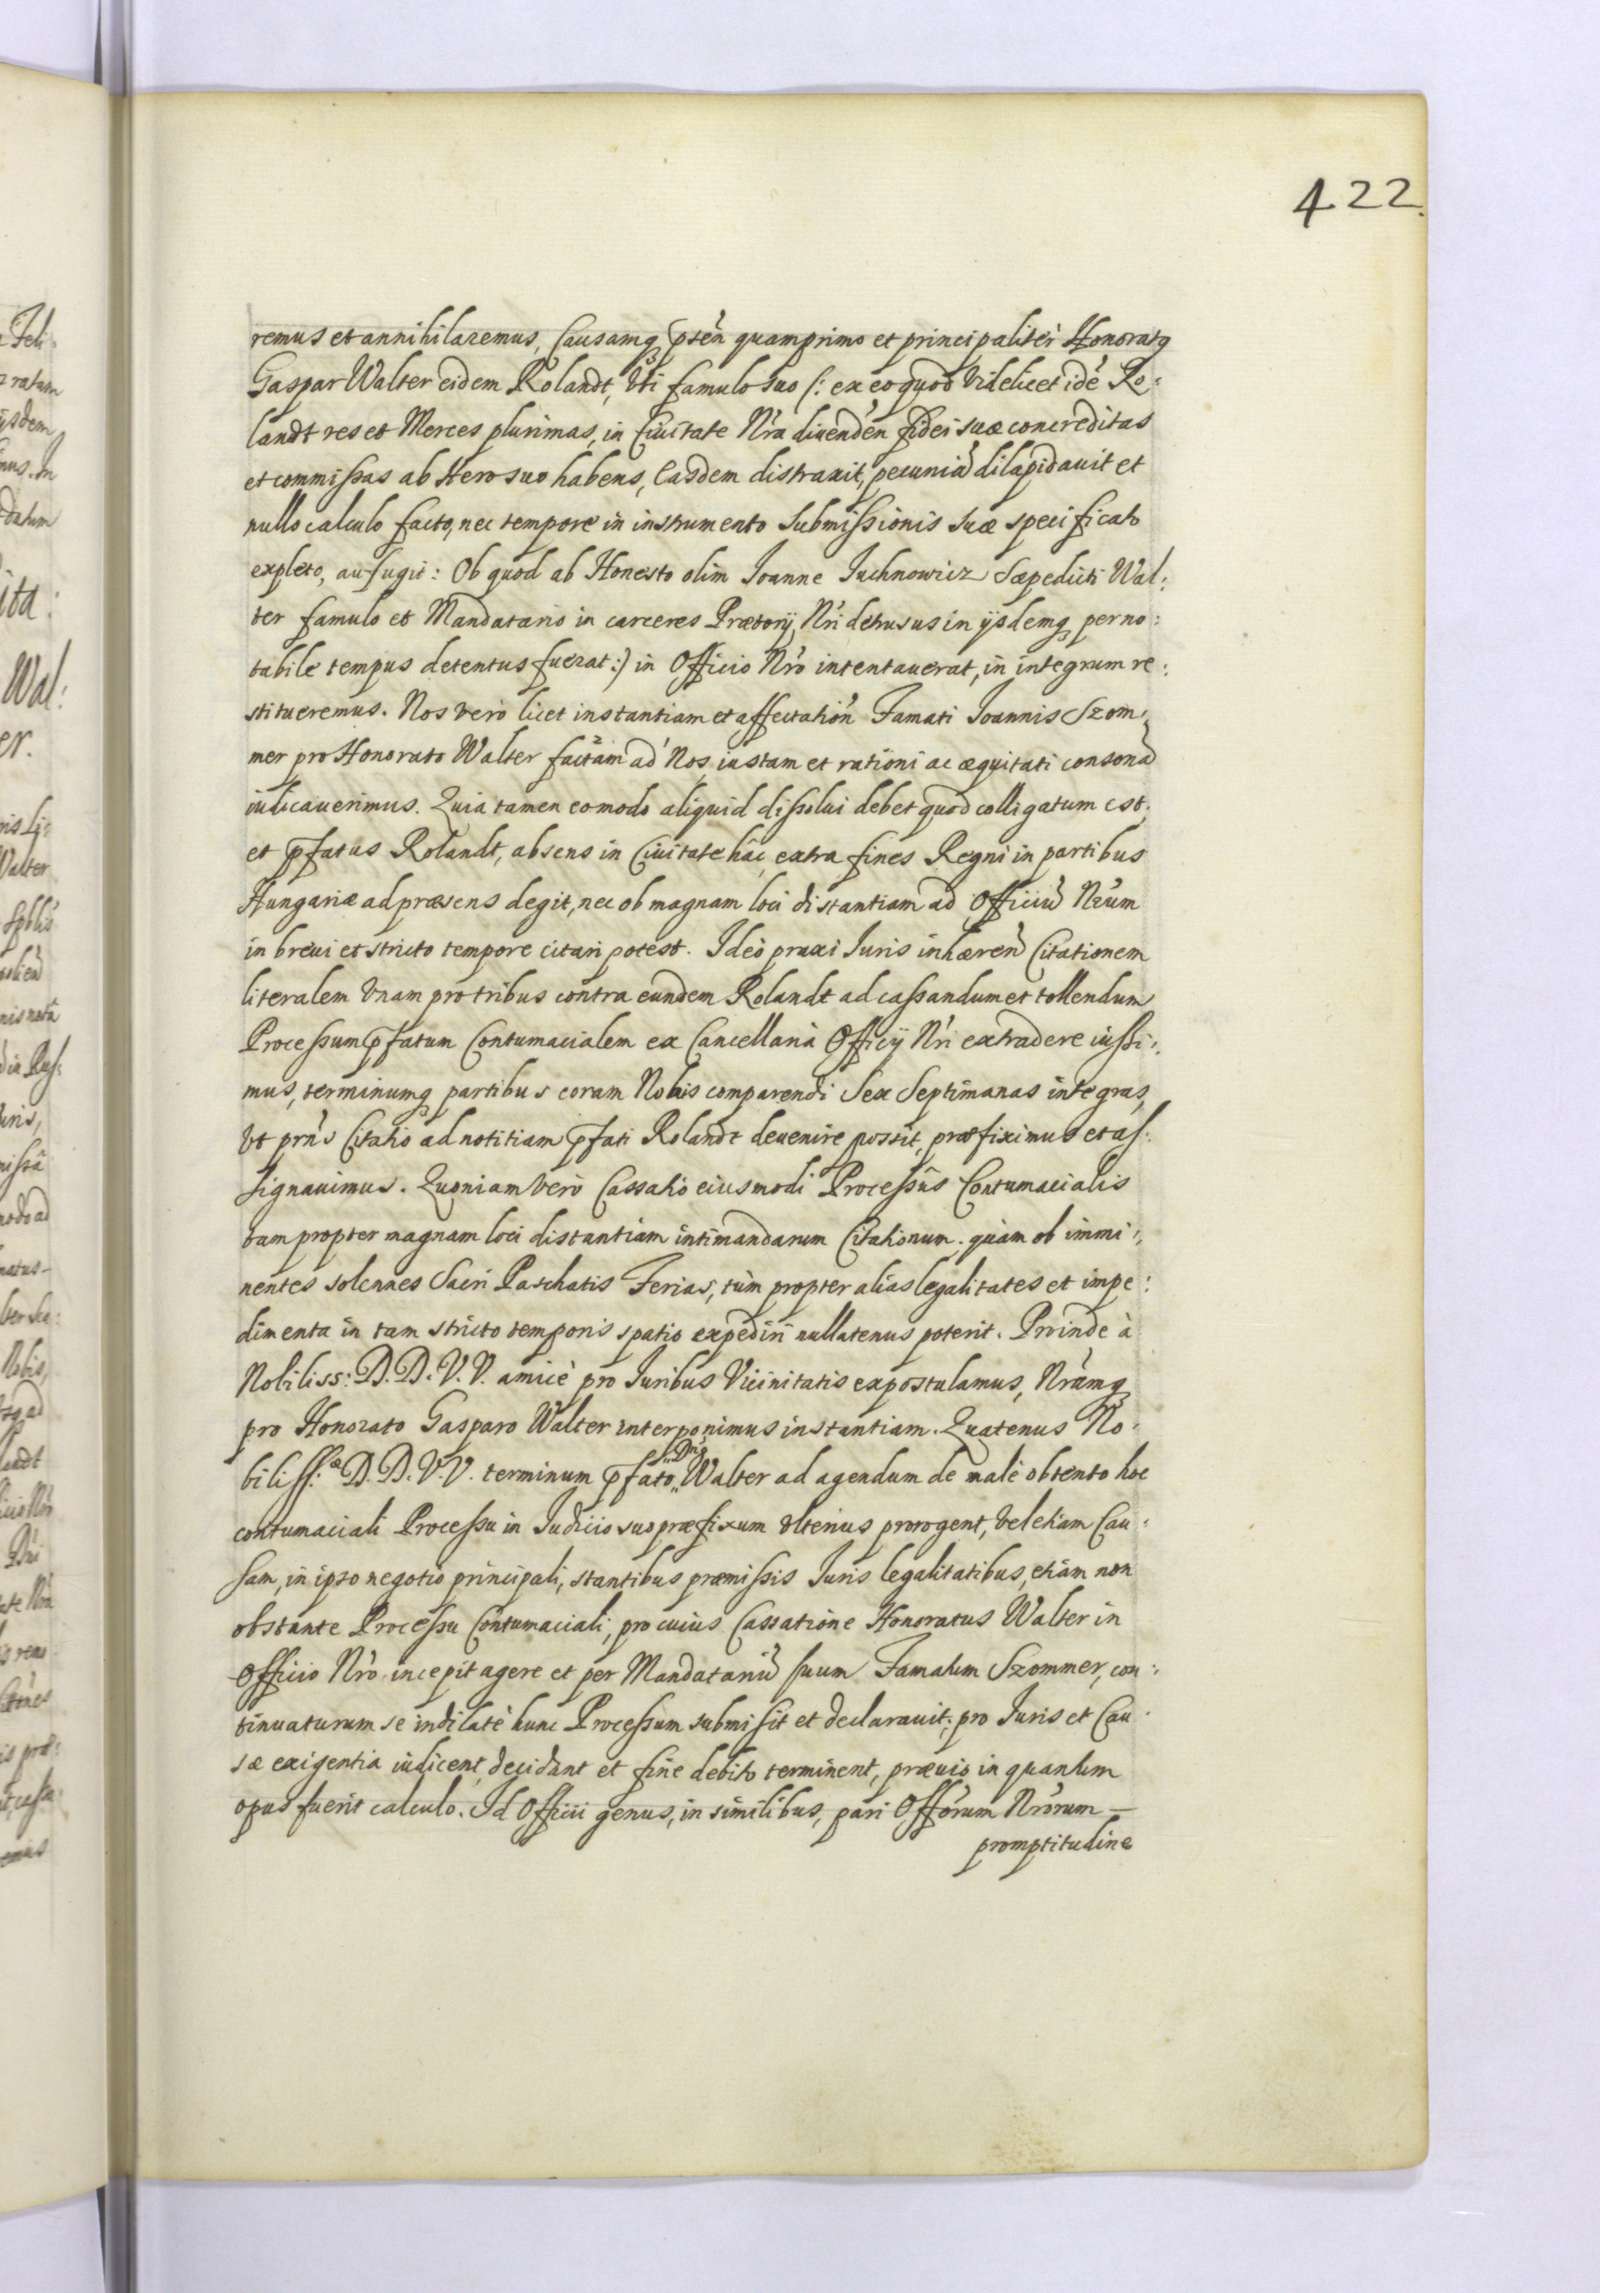 422.
remus et annihilaremus, Causamq₃ pstēn quamprimo et principaliter Honoratq
Gaspar Walter eidem Rolandt, Uti famulo suo (: ex eo quod Videlicet idē Ro:
landt res et Merces plurimas, in Ciuitate Nrā diuendēn fidei suæ concreditas
et commissas ab Hero suo habens, Easdem distraxit, pecuniā dilapidauit et
nullo calculo facto, nec tempore in instrumento Submissionis Suæ specificato
expleto, aufugit: Ob quod ab Honesto olim Ioanne Juchnowicz Sæpedicti Wal:
ter famulo et Mandatario in carceres Prætorij Nri detrusus in ijsdemq₃ per no:
tabile tempus detentus fuerat :) in Officio Nrō intentauerat, in integrum re:
stitueremus. Nos verò licet instantiam et affectatiōn Famati Ioannis Szom:
mer pro Honorato Walter factam ad Nos, iustam et rationi ac æquitati consonā
iudicauerimus. Quia tamen eo modo aliquid dissolui debet quod colligatum est,
et pfatus Rolandt, absens in Ciuitate hâc, extra fines Regni in partibus
Hungariæ ad præsens degit, nec ob magnam loci distantiam ad Officiū Nrūm
in breui et stricto tempore citari potest. Ideò praxi Iuris inhærēn Citationem
literalem Unam pro tribus contra eundem Rolandt ad cassandum et tollendum
Processum pfatum Contumacialem ex Cancellaria Officij Nri extradere iussi:
mus, terminumq₃ partibus coram Nobis comparendi Sex Septimanas integras,
Ut prns Citatio ad notitiam pfati Rolandt deuenire possit, præfiximus et as:
signauimus. Quoniam Verò Cassatio eiusmodi Processûs Contumacialis
tam propter magnam loci distantiam intimandarum Citationum. quàm ob immi:
nentes solennes Sacri Paschatis Ferias, tùm propter alias legalitates et impe:
dimenta in tam stricto temporis spatio expediri nullatenus poterit. Proinde à
Nobiliss: D. D. V. V. amicè pro Iuribus Vicinitatis expostulamus, Nrāmq₃
pro Honorato Gasparo Walter interponimus instantiam. Quatenus No:
biliss: æ D. D. V. V. terminum pfato Walter ad agendum de malè obtento hoc
contumaciali Processu in Iudicio suo præfixum Ulterius prorogent, Vel etiam Cau:
sam, in ipso negotio principali, stantibus præmissis Iuris legalitatibus, etiam non
obstante Processu Contumaciali, pro cuius Cassatione Honoratus Walter in
Officio Nrō incepit agere et per Mandatariū suum Famatum Szommer, con:
tinuaturum se indilatè hunc Processum submisit et declarauit, pro Iuris et Cau:
sæ exigentia iudicent, decidant et fine debito terminent, præuio in quantum
opus fuerit calculo. Id Officii genus, in similibus, pari Offōrum Nrōrum —
promptitudine